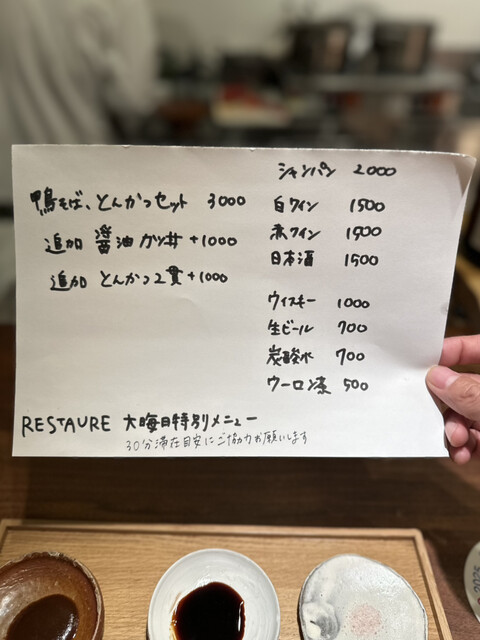 鴨そば、とんかつセット 3000
追加 醤油カツ丼 +1000
追加 とんかつ2貫 +1000
シャンパン 2000
白ワイン 1500
赤ワイン 1500
日本酒 1500
ウイスキー 1000
生ビール 700
炭酸水 700
ウーロン茶 500
RESTAURE 大晦日特別メニュー
30分滞在目安にご協力お願いします